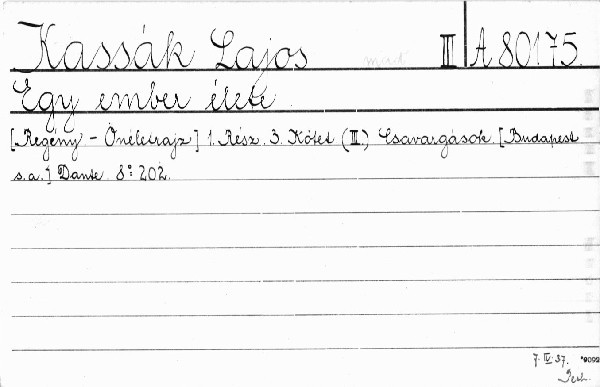 Kassák Lajos III A 80175
Egy ember élete
[Regény - Önéletrajz] 1. Rész. 3. Kötet (III.) Csavargások. [Budapest
s.a.] Dante. 8° 202.
7. IV. 37. *9092